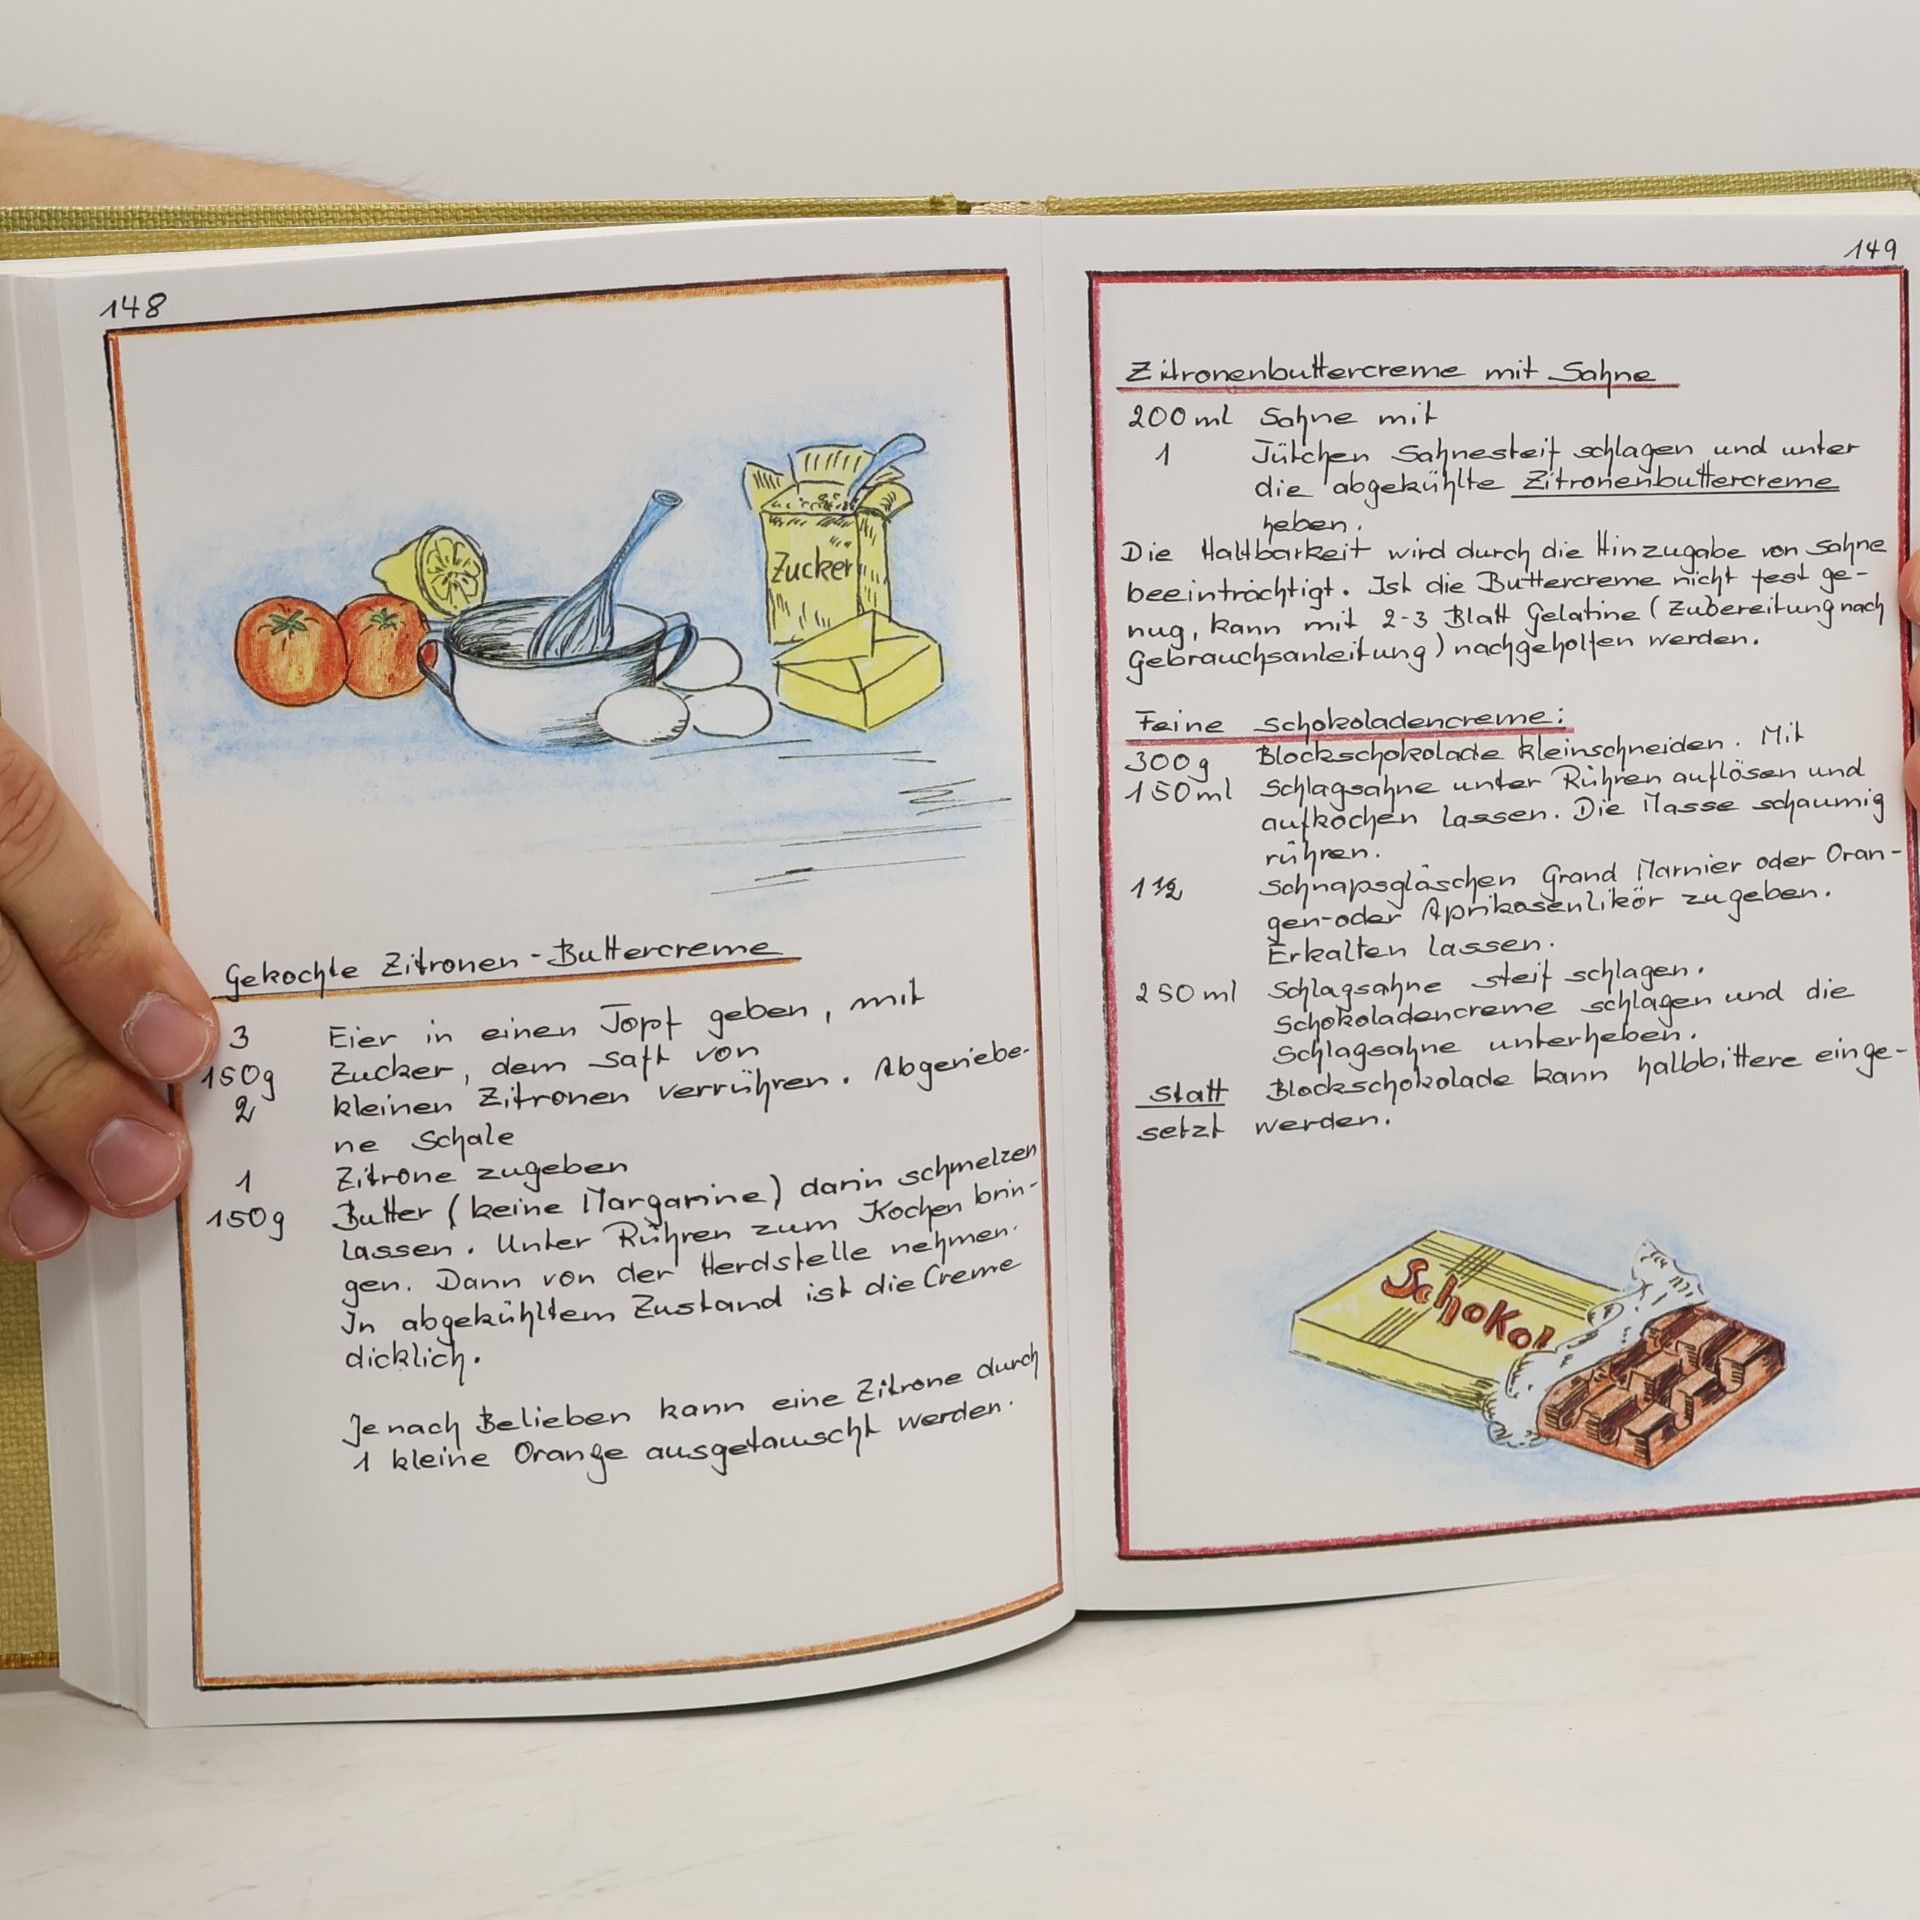 148
Zucker
Gekochte Zitronen-Buttercreme
3 Eier in einen Topf geben, mit
150g Zucker, dem Saft von
2 kleinen Zitronen verrühren. Abgeriebe-
ne Schale
1 Zitrone zugeben
150g Butter (keine Margarine) darin schmelzen
lassen. Unter Rühren zum Kochen brin-
gen. Dann von der Herdstelle nehmen.
In abgekühltem Zustand ist die Creme
dicklich.
Je nach Belieben kann eine Zitrone durch
1 kleine Orange ausgetauscht werden.
149
Zitronenbuttercreme mit Sahne
200ml Sahne mit
1 Tütchen Sahnesteif schlagen und unter
die abgekühlte Zitronenbuttercreme
heben.
Die Haltbarkeit wird durch die Hinzugabe von Sahne
beeinträchtigt. Ist die Buttercreme nicht fest ge-
nug, kann mit 2-3 Blatt Gelatine (Zubereitung nach
Gebrauchsanleitung) nachgeholfen werden.
Feine Schokoladencreme:
300g Blockschokolade kleinschneiden. Mit
150ml Schlagsahne unter Rühren auflösen und
aufkochen lassen. Die Masse schaumig
rühren.
1 1/2 Schnapsgläschen Grand Marnier oder Oran-
gen- oder Aprikosenlikör zugeben.
Erkalten lassen.
250ml Schlagsahne steif schlagen.
Schokoladencreme schlagen und die
Schlagsahne unterheben.
Statt Blockschokolade kann halbbittere einge-
setzt werden.
Schokol